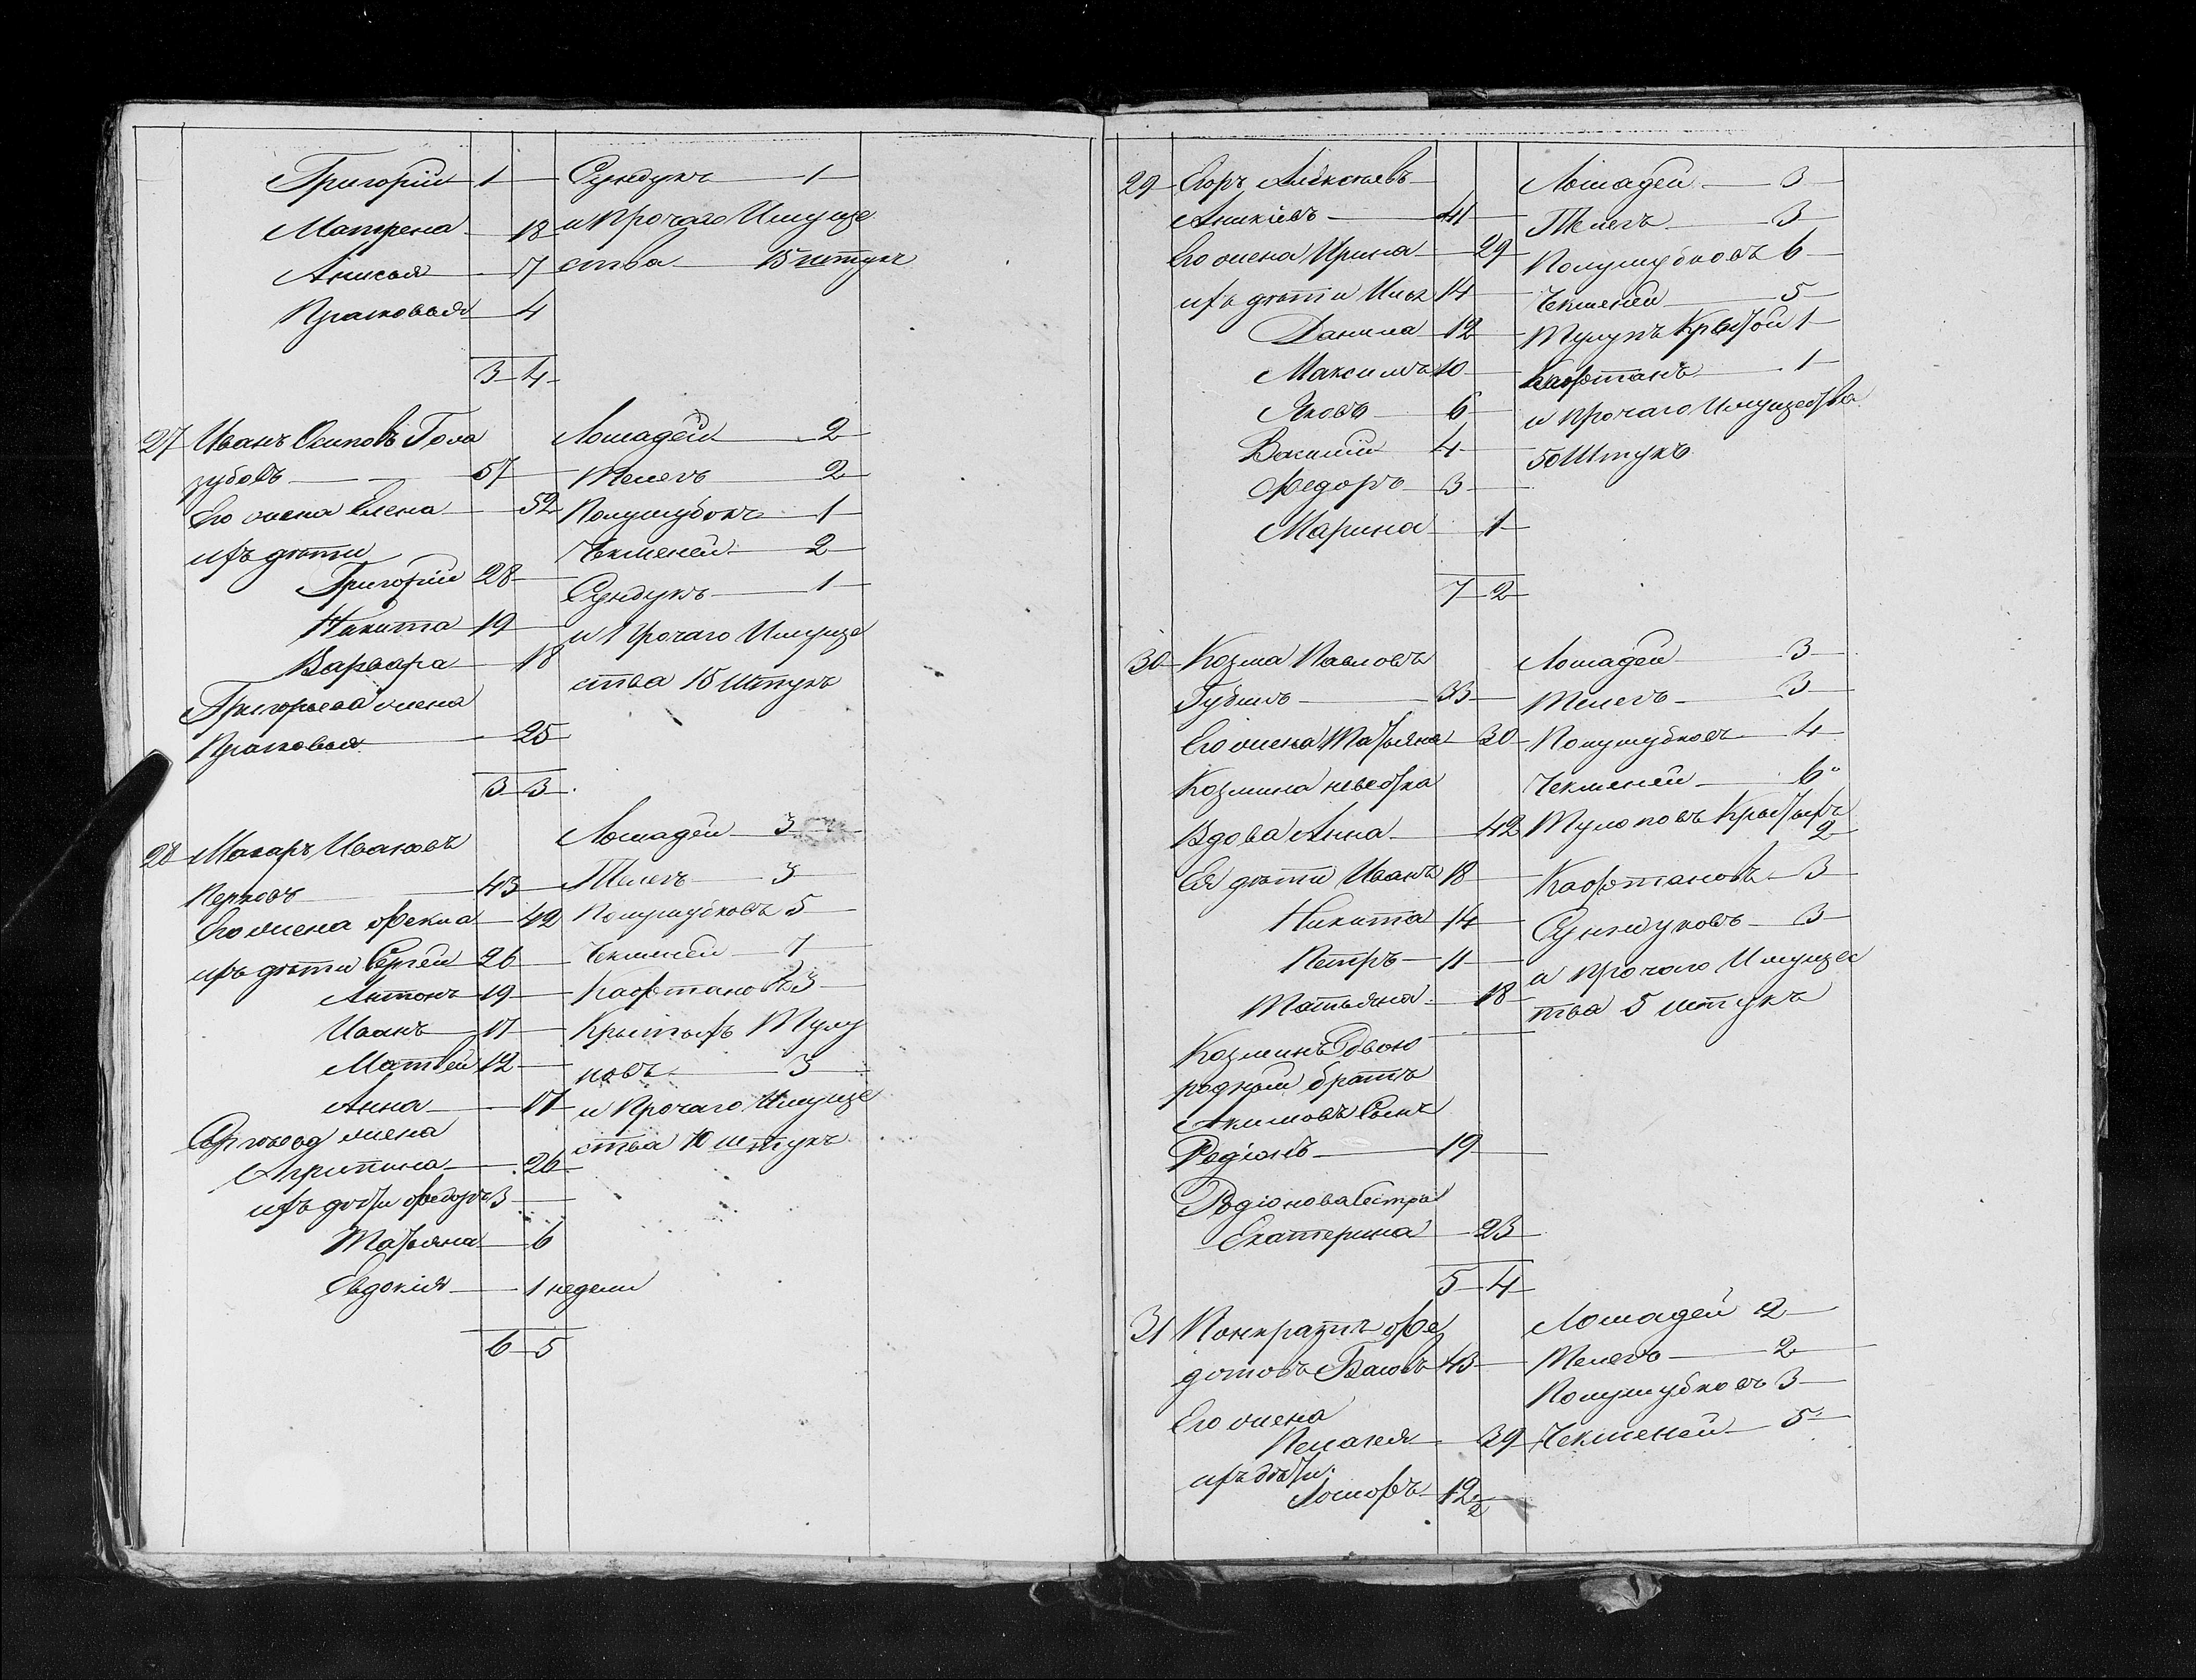 Григорій 1 Сундукъ 1
Матрена 18 и Прочаго Имуще
Анисья 7 ства 15 штукъ
Прасковья 4
3 4
27 Иванъ Осиповъ Гола Лошадей 2
зубовъ 57 Телегъ 2
Его жена Елена 52 Полушубокъ 1
ихъ дѣти Чекменей 2
Григорій 28 Сундукъ 1
Никита 19 и Прочаго Имуще
Варвара 18 ства 15 штукъ
Григорьева жена
Прасковья 25
3 3
28 Макаръ Ивановъ Лошадей 3
43 Телегъ 3
Его жена Фекла 42 Полушубковъ 5
ихъ дѣти Сергей 26 Чекменей 7
Антонъ 19 Кафтановъ 3
Иванъ 17 Крытыхъ Тулу
Матвей 12 повъ 3
Анна 17 и Прочаго Имуще
Сергѣева жена ства 10 штукъ
Агрипина 26
ихъ дѣти Федоръ 3
Татьяна 6
Евдокія 1 недели
6 5
29 Егоръ Алексѣевъ Лошадей 3
Аникіевъ 41 Телегъ 3
Его жена Ирина 29 Полушубковъ 6
ихъ дѣти Илья 14 Чекменей 5
Данила 12 Тулупъ Крытой 1
Максимъ 10 Кафтанъ 1
Яковъ 6 и Прочаго Имущества
Василій 4 50 Штукъ
Федоръ 3
Марина 1
7 2
30 Козма Павловъ Лошадей 3
Губинъ 33 Телегъ 3
Его жена Татьяна 30 Полушубковъ 4
Козмина невестка Чекменей 6
Вдова Анна 42 Тулоповъ Крытыхъ 2
Ея дѣти Иванъ 18 Кафтановъ 3
Никита 14 Сундуковъ 3
Петръ 11 и Прочаго Имущес
Татьяна 18 тва 5 штукъ
Козминъ Двою
родный братъ
Акимовъ Сынъ
Родіонъ 19
Родіонова Сестра
Екатерина 23
5 4
31 Понкратъ Фе Лошадей 2
дотовъ 43 Телегъ 2
Полушубковъ 3
Его жена
Пелагея 39 Чекменей 5
ихъ дѣти
12 1/2